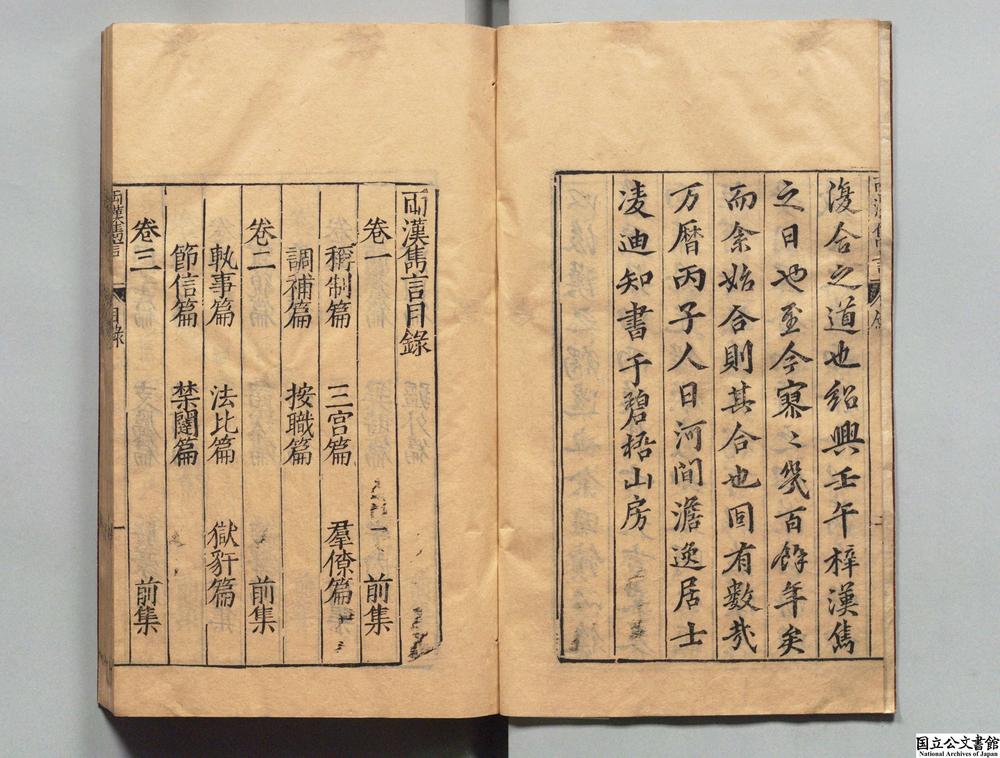 復合之道也紹興壬午梓漢雋
之日也至今寥〻幾百餘年矣
而余始合則其合也固有數哉
万曆丙子人日河間澹逸居士
凌迪知書于碧梧山房
兩漢雋言目錄
卷一 前集
稱制篇 三宫篇 羣僚篇
調補篇 按職篇
卷二 前集
執事篇 法比篇 獄豻篇
節信篇 禁闥篇
卷三 前集
兩漢雋言 目錄 一
国立公文書館
National Archives of Japan